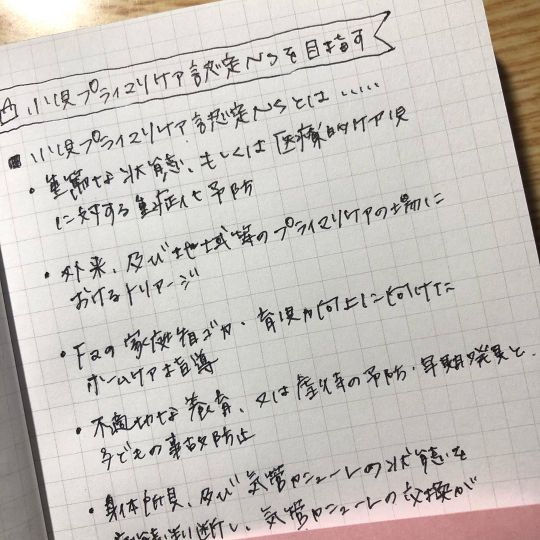 小児プライマリケア認定Nsを目指す
小児プライマリケア認定Nsとは……
・重篤な状態、もしくは医療的ケア児
に対する重症化予防
・外来、及び地域等のプライマリケアの場に
おけるトリアージ
・Faの家庭看護力、育児力向上に向けた
ホームケア指導
・不適切な養育、又は虐待の予防・早期発見と、
子どもの事故防止
・身体所見、及び気管カニューレの状態を
判断し、気管カニューレの交換が